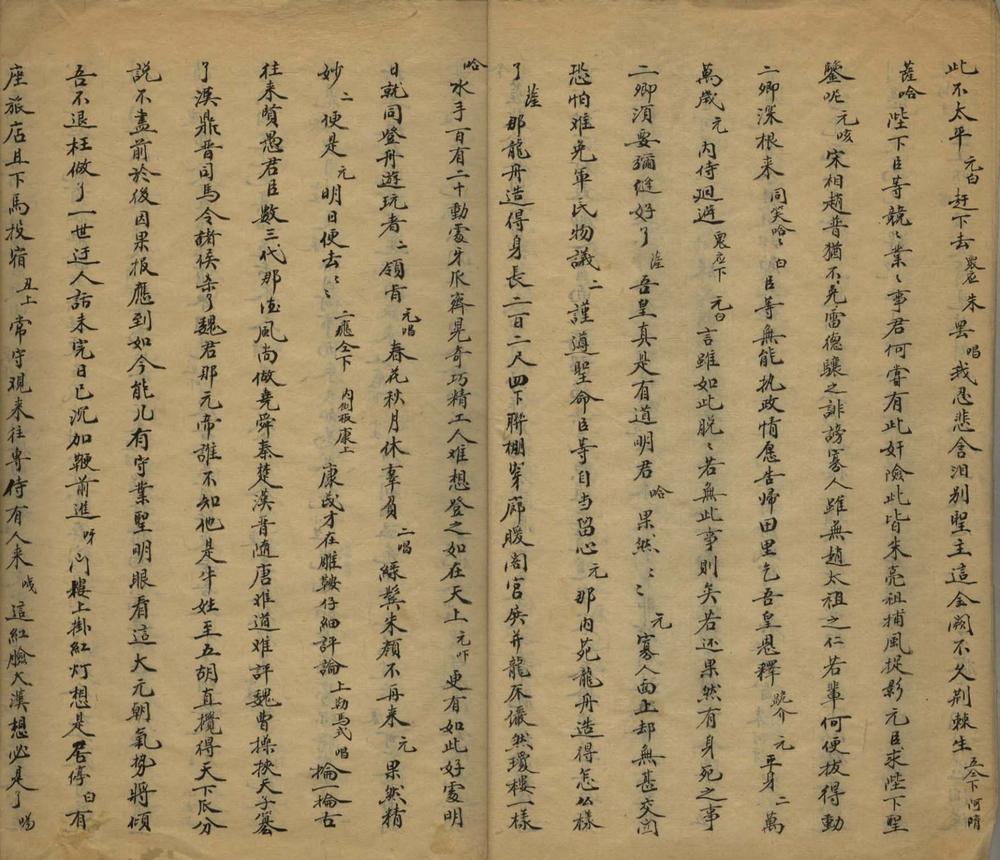 此不太平 元白 赶下去 众应 朱 罢 唱 我忍悲含泪别聖主這金阙不久荆棘生 仝下 阿隋
薩哈 陛下臣等競〻業〻事君何嘗有此奸險此皆朱亮祖捕風捉影元臣求陛下聖
鑒呢 元咳 宋相趙普猶不免雷德驤之誹謗寡人雖無趙太祖之仁若輩何便拔得動
二卿深根来 同笑哈〻 白 臣等無能执政情愿告帰田里乞吾皇恩釋 跪介 元 平身 二 萬
萬歲 元 内侍廻避 鬼应下 元白 言雖如此脱〻若無此事則矣若还果然有身死之事
二卿須要彌缝好了 薩 吾皇真是有道明君 哈 果然〻〻 元 寡人面上却無甚交関
恐怕难免軍民物議 二 謹遵聖命臣等自当留心 元 那内苑龍舟造得怎広樣
了 薩 那龍舟造得身長二百二尺四下聯棚穿廊暖阁官庆并龍床儼然瓊樓一樣
哈 水手百有二十動處牙爪齊晃奇巧精工人难想登之如在天上 元吓 更有如此好處明
日就同登舟遊玩者 二 領肯 元唱 春花秋月休辜負 二唱 綠鬓朱颜不再来 元 果然精
妙 二 便是 元 明日便去〻〻 二應仝下 内倒板康上 康茂才在雕鞍仔細評論 上勒馬式 唱 掄一掄古
往来賢愚君臣數三代那淳風尚做堯舜秦楚漢晋随唐难道难評魏曹操挾天子篡
了漢鼎晋司馬今諸侯杀了魏君那元帝誰不知他是牛姓至五胡直攪得天下瓜分
說不盡前於後因果报應到如今能几有守業聖明眼看這大元朝氣势將傾
吾不退枉做了一世迂人話未完日已沉加鞭前進 呀 门樓上掛紅灯想是居停 白 有
座旅店且下馬投宿 丑上 常守观来往专侍有人来 唛 這紅臉大漢想必是了 喝